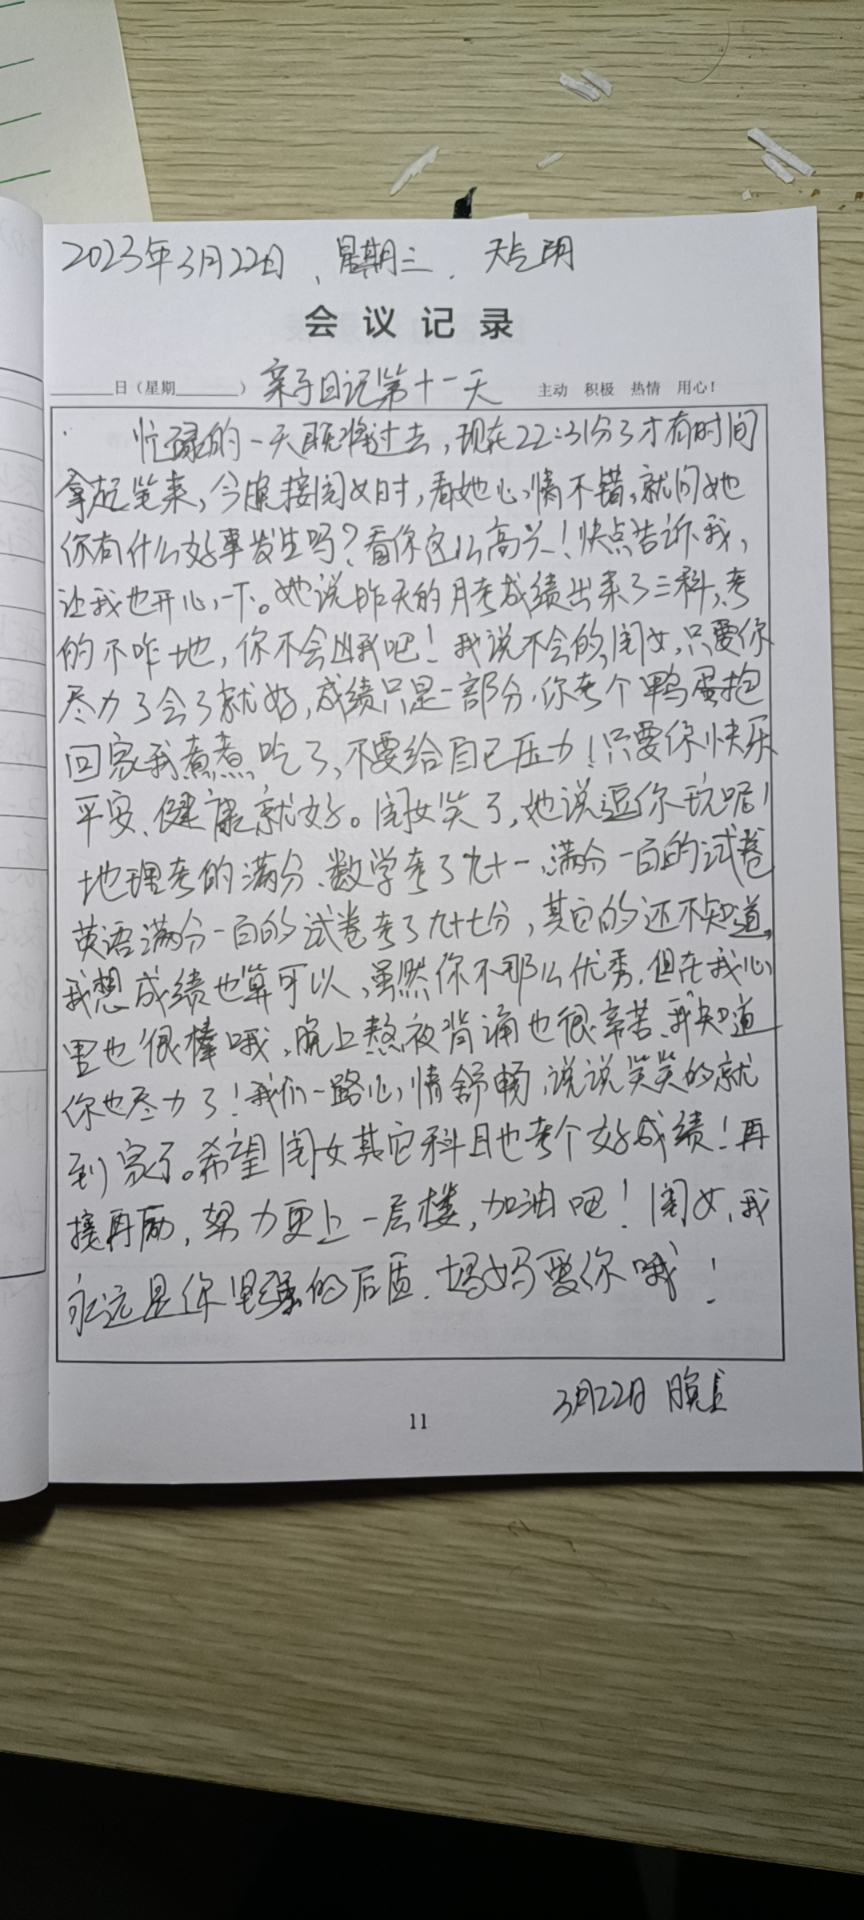 2023年3月22日、星期三.天气阴
会议记录
日（星期　　）亲子日记第十一天 主动 积极 热情 用心！
忙碌的一天既将过去，现在22:31分了才有时间
拿起笔来，今晚接闺女时，看她心情不错，就问她
你有什么好事发生吗？看你这么高兴！快点告诉我，
让我也开心一下。她说昨天的月考成绩出来了三科，考
的不咋地，你不会凶我吧！我说不会的，闺女，只要你
尽力了会了就好，成绩只是一部分，你考个鸭蛋抱
回家我煮煮吃了，不要给自己压力！只要你快乐
平安、健康就好。闺女笑了，她说逗你玩呢！
地理考的满分、数学考了九十一，满分一百的试卷
英语满分一百的试卷考了九十七分，其它的还不知道，
我想成绩也算可以，虽然你不那么优秀，但在我心
里也很棒哦，晚上熬夜背诵也很辛苦，我知道
你也尽力了！我们一路心情舒畅，说说笑笑的就
到家了。希望闺女其它科目也考个好成绩！再
接再励，努力更上一层楼，加油吧！闺女，我
永远是你坚强的后盾．妈妈爱你哦！
3月22日 晚上
11